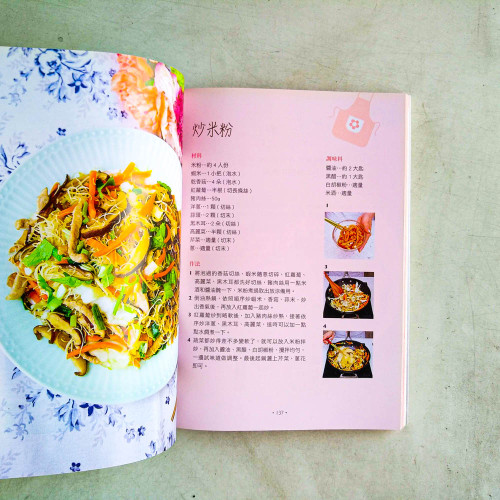 炒米粉
材料
米粉…約4人份
蝦米…一小把(泡水)
乾香菇…4朵(泡水)
紅蘿蔔…半根(切長條絲)
豬肉絲…50g
洋蔥…1顆(切絲)
蒜頭…2顆(切末)
黑木耳…2朵(切絲)
高麗菜…半顆(切絲)
芹菜…適量(切末)
蔥…適量(切末)
調味料
醬油…約2大匙
黑醋…約1大匙
白胡椒粉…適量
米酒…適量
作法
1 將泡過的香菇切絲、蝦米隨意切碎、紅蘿蔔、
高麗菜、黑木耳都洗好切絲,豬肉絲用一點米
酒和醬油醃一下,米粉煮開取出放涼備用。
2 倒油熱鍋,依照順序炒蝦米、香菇、蒜末,炒
出香氣後,再放入紅蘿蔔一起炒。
3 紅蘿蔔炒到略軟後,加入豬肉絲炒熟,接著依
序炒洋蔥、黑木耳、高麗菜,這時可以加一點
點水燜煮一下。
4 蔬菜都炒得差不多變軟了,就可以放入米粉拌
炒,再加入醬油、黑醋、白胡椒粉,攪拌均勻,
一邊試味道做調整。最後起鍋灑上芹菜、蔥花
即可。
1
3
4
·137·